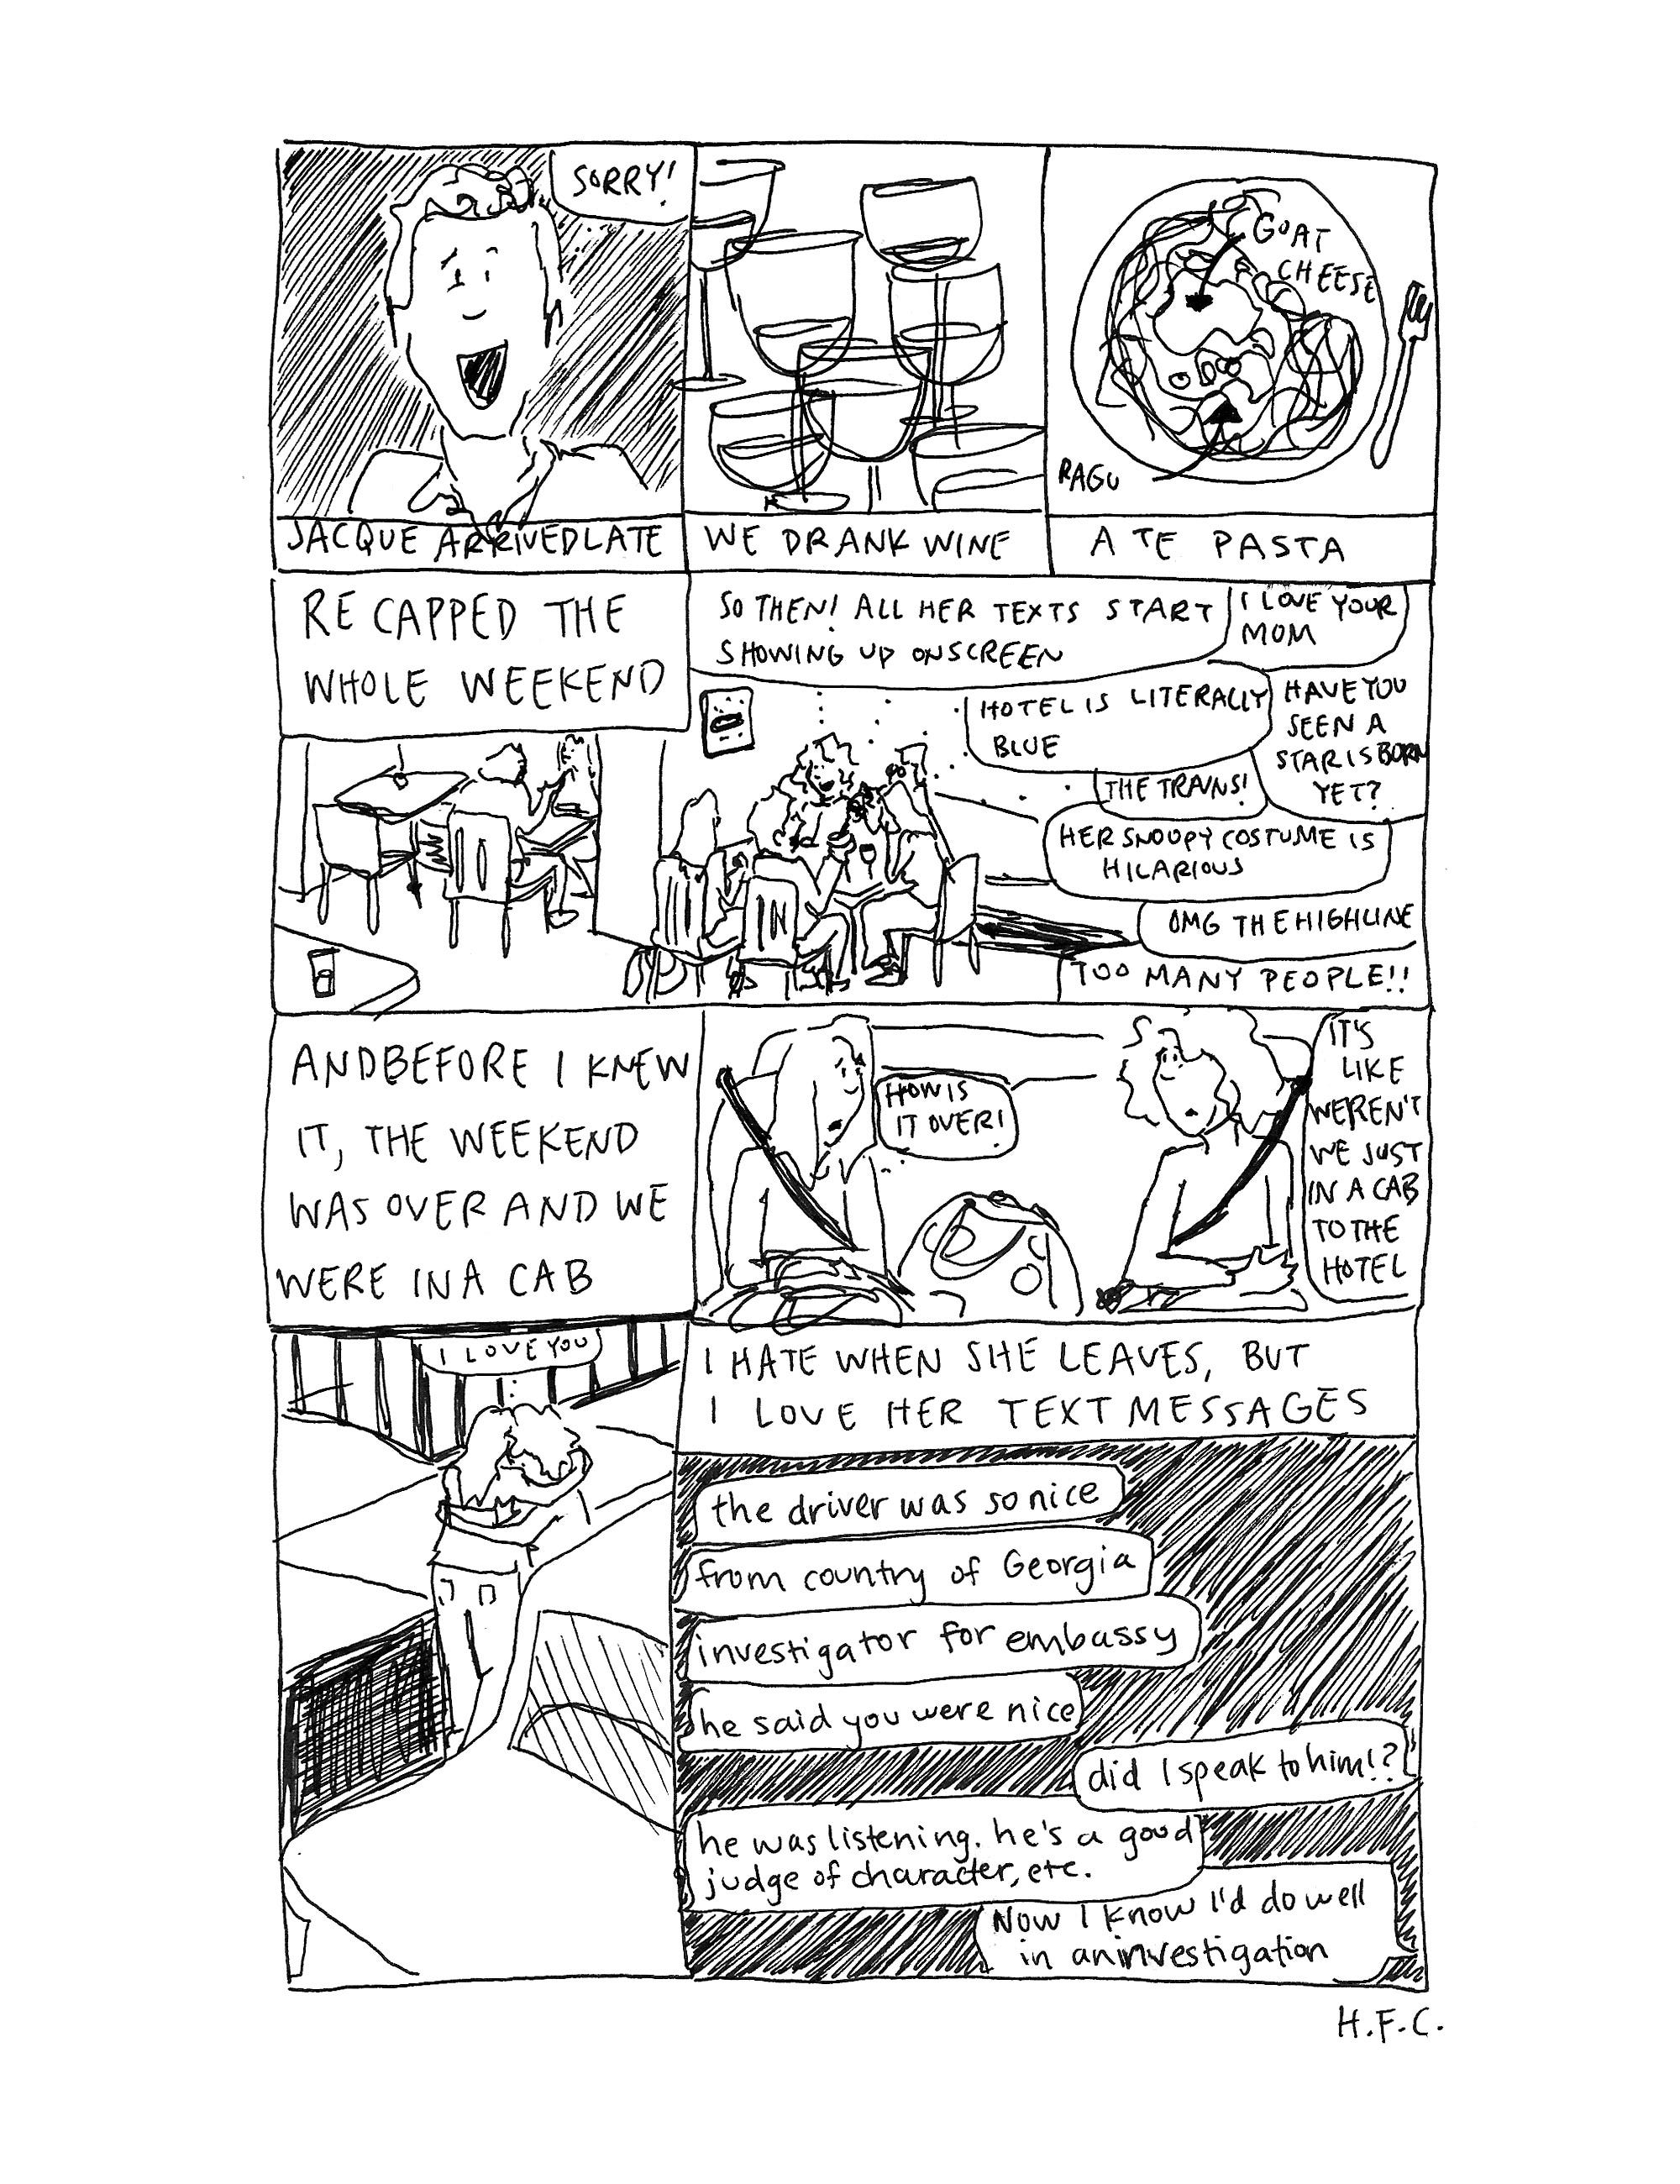 SORRY!
JACQUE ARRIVED LATE
WE DRANK WINE
GOAT
CHEESE
RAGU
ATE PASTA
RECAPPED THE
WHOLE WEEKEND
SO THEN! ALL HER TEXTS START
SHOWING UP ONSCREEN
I LOVE YOUR
MOM
HOTEL IS LITERALLY
BLUE
HAVE YOU
SEEN A
STAR IS BORN
YET?
THE TRAINS!
HER SNOOPY COSTUME IS
HILARIOUS
OMG THE HIGHLINE
TOO MANY PEOPLE!!
AND BEFORE I KNEW
IT, THE WEEKEND
WAS OVER AND WE
WERE IN A CAB
HOW IS
IT OVER!
IT'S
LIKE
WEREN'T
WE JUST
IN A CAB
TO THE
HOTEL
I LOVE YOU
I HATE WHEN SHE LEAVES, BUT
I LOVE HER TEXT MESSAGES
the driver was so nice
from country of Georgia
investigator for embassy
he said you were nice
did I speak to him!?
he was listening. he's a good
judge of character, etc.
Now I know I'd do well
in an investigation
H.F.C.